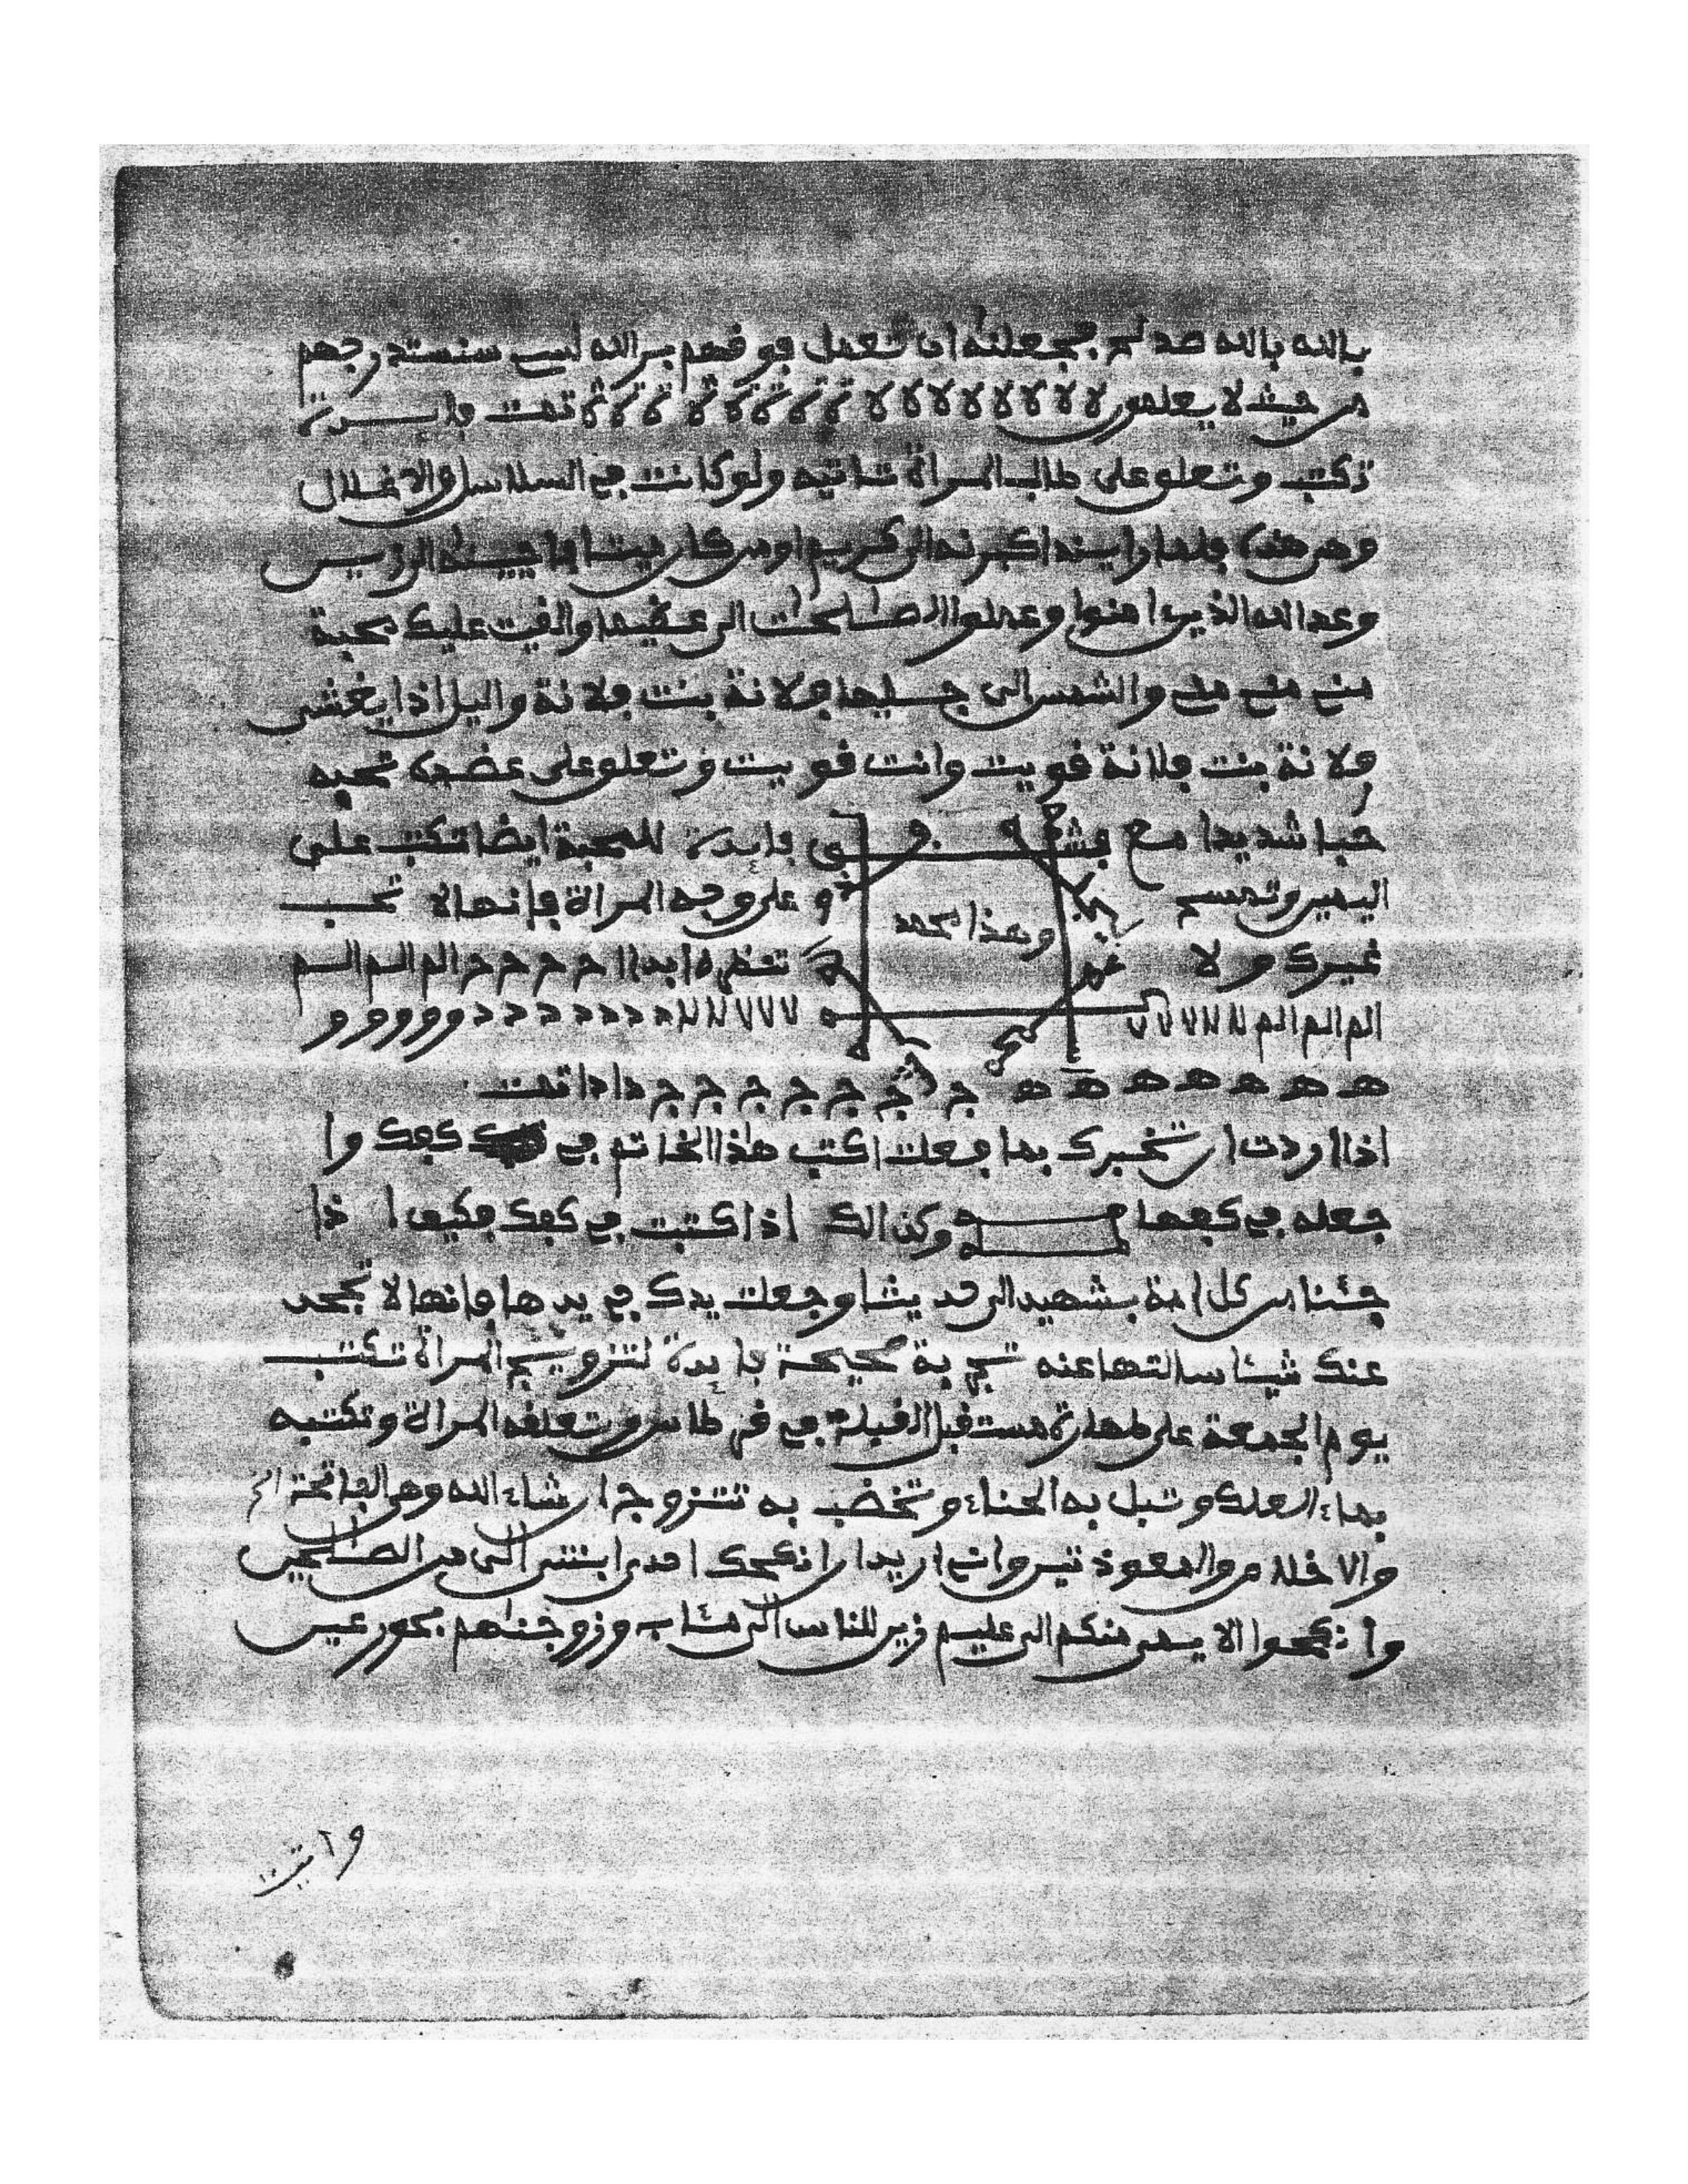 بالله بالله صد لم بجعلته ان تعمل فوقهم سر الله لسب سنستدرجهم
من حيث لا يعلمون لا لا لا لا لا لا لا لا ة ة ة ة ة ة ة ة تمت فايدة
تكتب وتعلو على طالب المراة تاتيه ولو كانت في السلاسل والاغلال
وهي هذه فلما راينه اكبرنه الى كريم اومن كان ميتا فاحيينه الى زين
وعد الله الذين امنوا وعملوا الصلحت الى عظيما والقيت عليك محبة
مني مني مني والشمس الى جليها فلانة بنت فلانة واليل اذا يغشى
فلانة بنت فلانة قويت وانت قويت وتعلو على عضدك تحبه
حبا شديدا مع فايدة للمحبة ايضا تكتب على
اليمين وتمسح على وجه المراة فإنها لا تحب
وهذا محمد
غيرك ولا تنظره ابدا ا م م م م م الم الم الم
الم الم الم ٧ ٧ ٧ ٧ ٧ ٧ ٧ ٧ د د د د د د د و و و و و
ه ه ه ه ه ه ه ج ج ج ج ج ج ج ج دا دا تمت
اذا اردت ان تخبرك بما فعلت اكتب هذا الخاتم في كفك وا
جعله في كفها وكذالك اذا كتبت في كفك فكيف ا ذا
جئنا من كل امة بشهيد الى حديثا وجعلت يدك في يدها فإنها لا تجحد
عنك شيئا سالتها عنه تجربة صحيحة فايدة لتزويج المراة تكتب
يوم الجمعة على طهارة مستقبل القبلة في قرطاس وتعلقه المراة وتكتبه
بماء الملك وتبل به الحناء وتخضب به تتزوج ان شاء الله وهي الفاتحة الم
والاخلاص والمعوذتين واني اريد ان انكحك احدى ابنتي الى من الصلحين
وانكحوا الايمى منكم الى عليم زين للناس الى مئاب وزوجنهم بحور عين
وابتـ